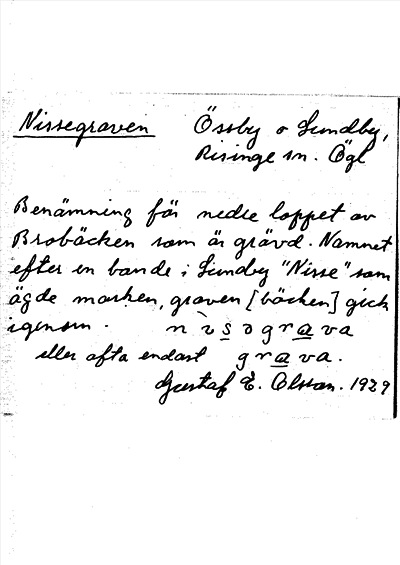 Nissegraven Össby o Lundby,
Risinge sn. Ögl
Benämning för nedre loppet av
Brobäcken som är grävd. Namnet
efter en bonde i Lundby "Nisse" som
ägde marken, graven [bäcken] gick
igenom. nìsograva
eller ofta endast grava.
Gustaf E. Olsson. 1929